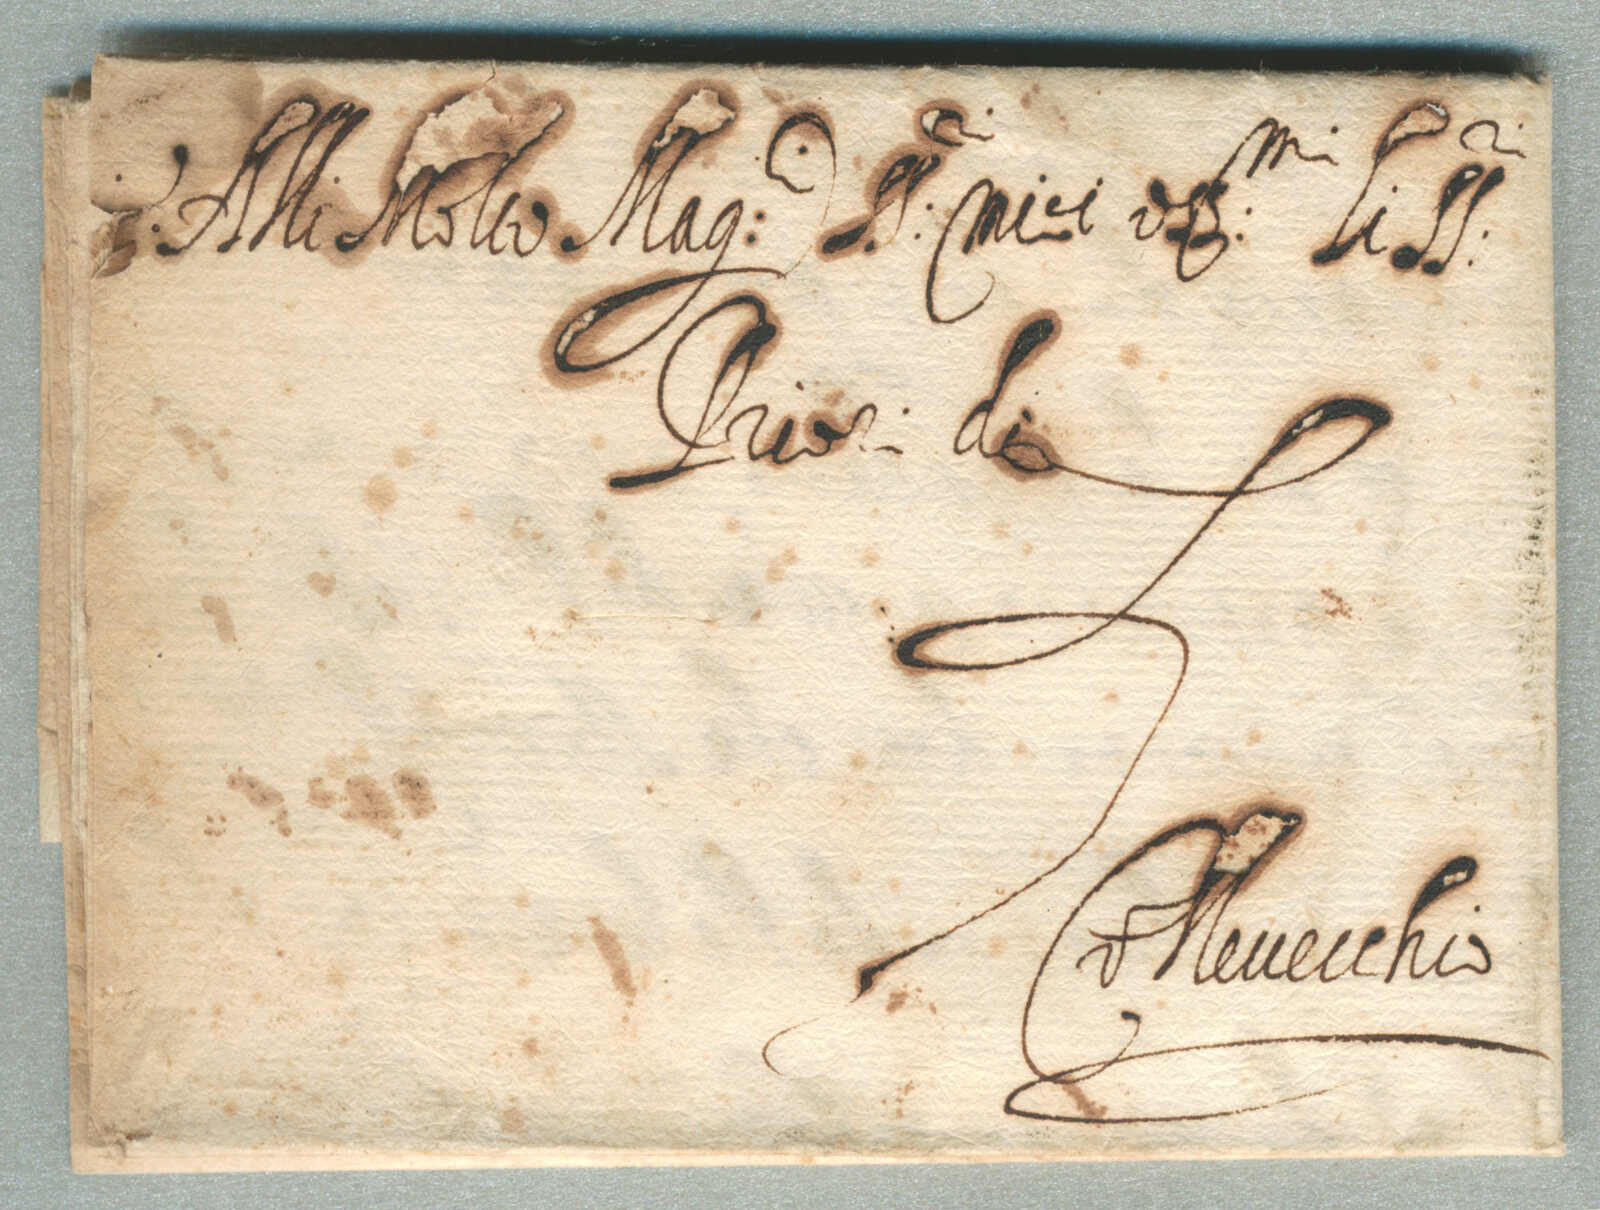 Alli Molto Mag:ci SS:ri miei oss:mi li SS:ri
Priori di
Mevecchio